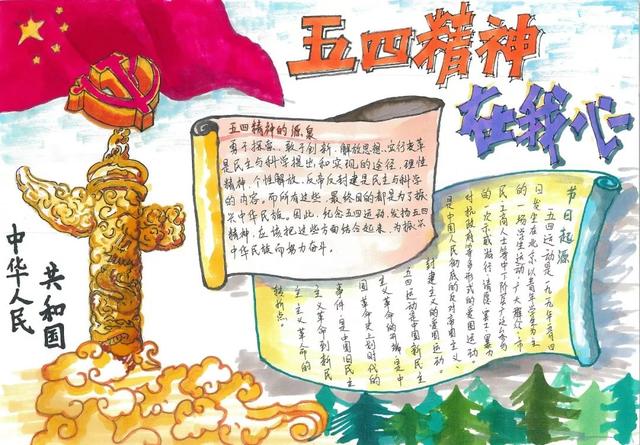 五四精神
在我心
中华人民
共和国
五四精神的源泉
勇于探索、敢于创新、解放思想、实行变革
是民主与科学提出和实现的途径,理性
精神、个性解放、反帝反封建是民主与科学
的内容,而所有这些,最终目的都是为了振
兴中华民族。因此,纪念五四运动,发扬五四
精神,应该把这些方面结合起来,为振兴
中华民族而努力奋斗。
节日起源
五四运动是一九一九年五月四
日发生在北京以青年学生为主
的一场学生运动,广大群众、市
民、工商人士等中下阶层广泛参与
的一次示威游行、请愿、罢工、暴力
对抗政府等多形式的爱国运动,
是中国人民彻底的反对帝国主义、
封建主义的爱国运动。
五四运动是中国新民主
主义革命的开端,是中
国革命史上划时代的
事件,是中国旧民主
主义革命到新民
主主义革命的
转折点。